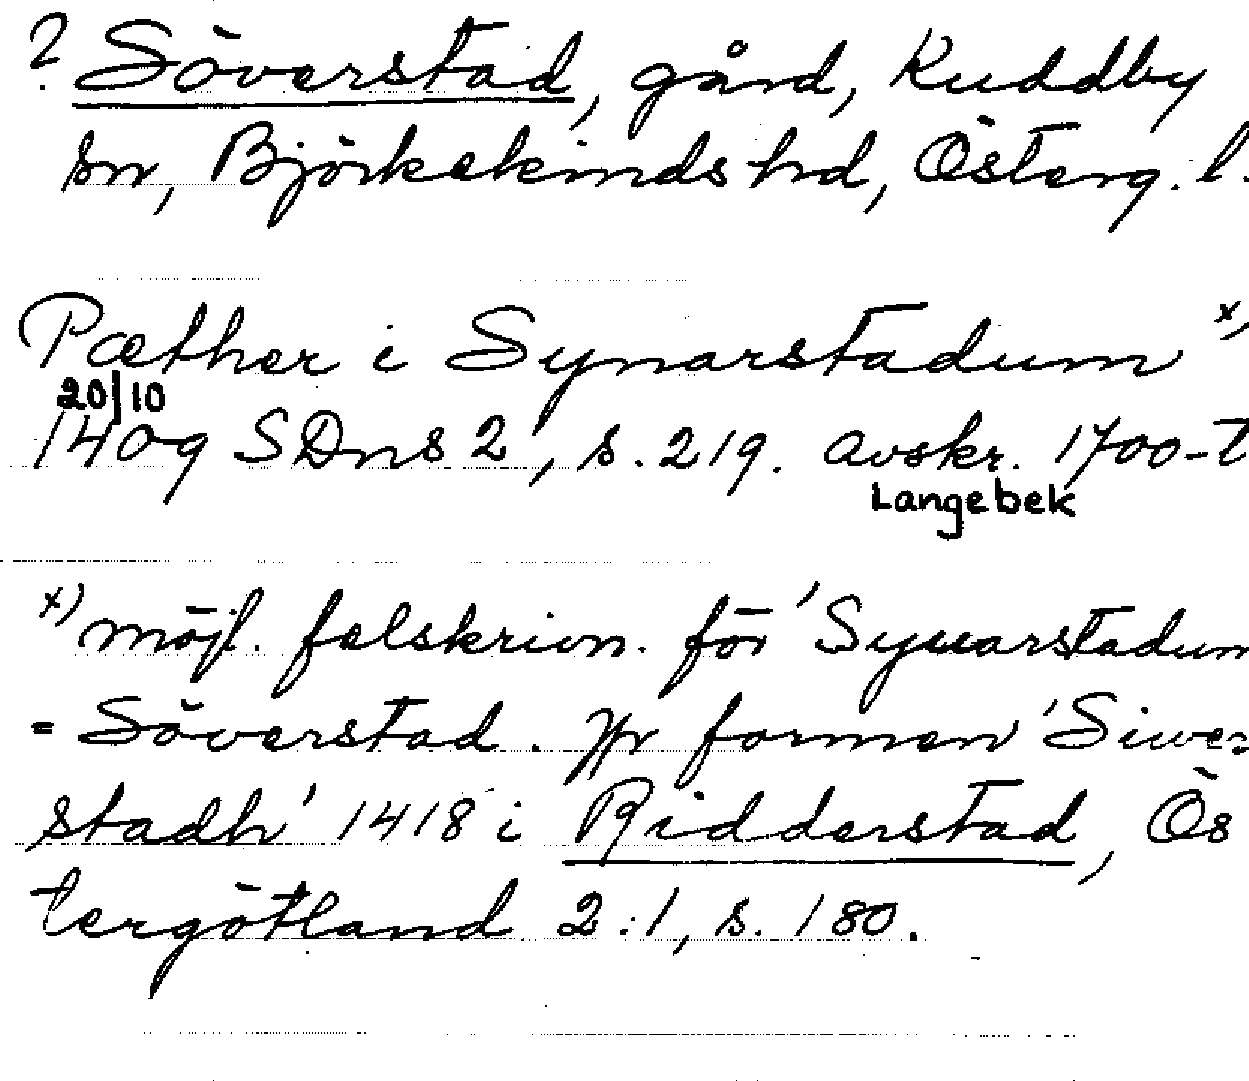 ? Söverstad, gård, Kuddby
sn, Björkekinds hd, Österg. l.
Pæther i Synarstadum x)
20/10
1409 SDns 2, s. 219. Avskr. 1700-t
Langebek
x) möjl. felskrivn. för 'Sywarstadum
= Söverstad. Jfr formen 'Siwe-
stadh' 1418 i Ridderstad, Ös
tergötland 2:1, s. 180.